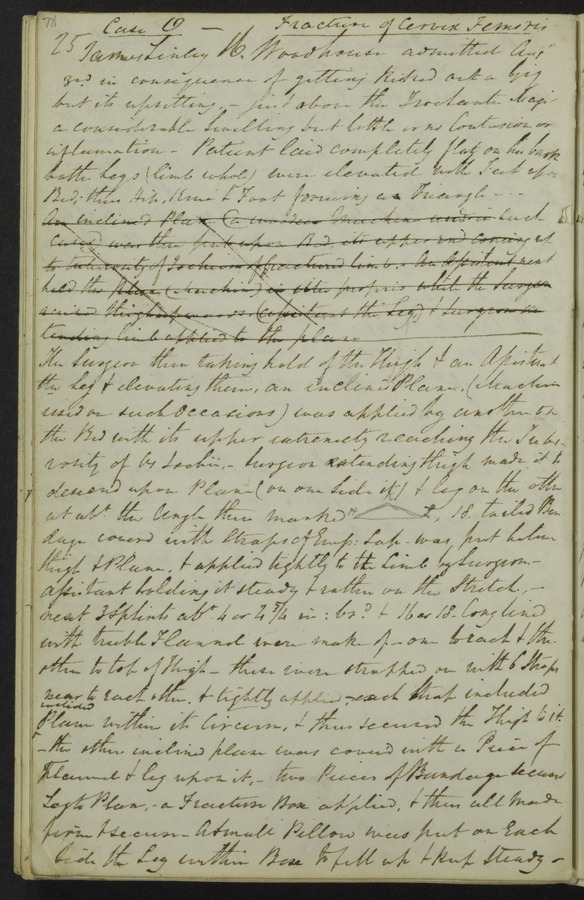 78
Case 19 — Fracture of Cervix Femoris
25 James Linley H. Woodhouse admitted Augt
3rd in consequence of getting kicked out a Gig
but its upsetting, – just above the Trochanter Major
a considerable Swelling but little or no Contusion or
inflamation – Patient laid completely flat on his back
both Legs (limb whole) were elevated with Feet upon
Bed; thus Hip, Knee & Foot forming a Triangle –
An inclined Plan (a wooden Machine used in such
cases) was then put upon Bed, its upper end coming up
to tuberosity of Ischium of fractured limb. – An Assistant next
held the Plane (Machine) in its whilst the Surgeon
raised thigh (Assistant the Leg) & Surgeon
tending limb applied to the plane
The Surgeon then taking hold of the Thigh & an Assistant
the Leg & elevating them, an inclined Plane, (Machine
used on such Occasions) was applied by another on
the Bed with its upper extremety reaching the Tube-
rosity of Os Ischii, – Surgeon extending thigh made it to
descend upon Plane (on one side of it) & leg on the other
at abt. the Angle thus marked 18. tailed Ban
dage coverd with Straps of Emp: Sap. was put between
thigh & Plane, & applied tightly to the Limb by Surgeon –
assistant holding it steady & rather on the Stretch, –
next 3 Splints abt 4 or 4 3/4 in: bd. & 16 or 18. long lined
with treble Flannel were made of – one to each & the
other to top of thigh – these were strapped on with 6 Straps
near to each other, & tightly applied – each strap included
included
Plane within its Circum, & thus secured the Thigh to it.
– the other inclined plane was coverd with a Piece of
Flannel & leg upon it, – two Pieces of Bandage secured
Leg to Plan, – a Fracture Box applied, & thus all made
firm & secure. A small Pillow was put on Each
side the Leg within Box to fill up & keep steady –